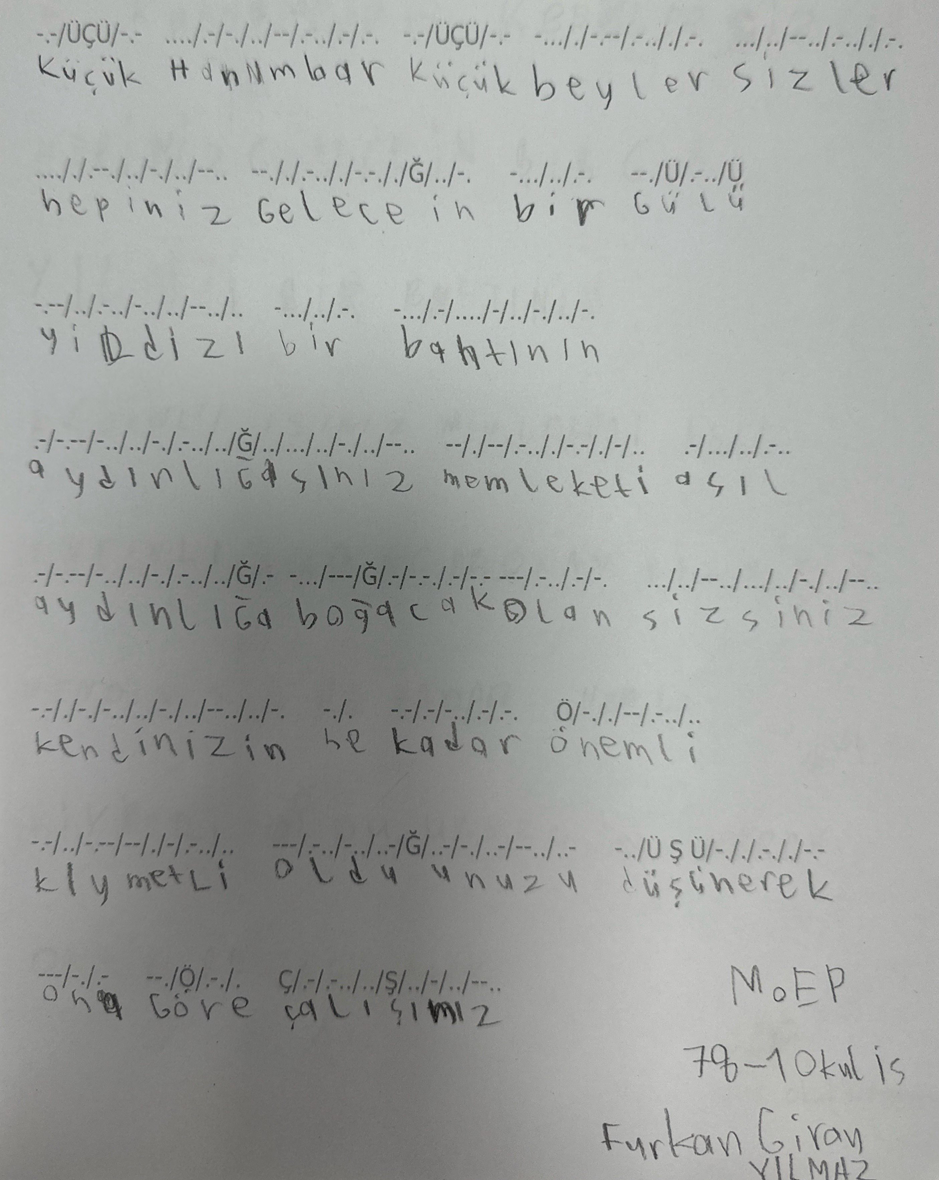 -.-/ÜÇÜ/-.- ..../.-/-./../--/-../.-/.-. -.-/ÜÇÜ/-.- -..././-.--/.-.././.-. .../../--../.-.././.-.
Küçük Hanımbar Küçük beyler sizler
...././.--./../-./../--.. --././.-.././-.-././Ğ/../-. -.../../.-. --./Ü/.-../Ü
hepiniz Gelece in bir Gülü
-.--/../.-../-../../--../.. -.../../.-. -.../.-/..../-/../-./../-.
yıldızı bir bahtının
.-/-.--/-../../-./.-../../Ğ/../.../../-./../--.. --/./--/.-.././-.-/./-/.. .-/.../../.-..
aydınlığısınız memleketi asıl
.-/-.--/-../../-./.-../../Ğ/.- -.../---/Ğ/.-/-.-./.-/-.- ---/.-../.-/-. .../../--../.../../-./../--..
aydınlığa boğacak olan sizsiniz
-.-/./-./-../../-./../--../../-. -./. -.-/.-/-../.-/.-. Ö/-././--/.-../..
kendinizin ne kadar önemli
-.-/../-.--/--/./-/.-../.. ---/.-../-../..-/Ğ/..-/-./..-/--../..- -../Ü Ş Ü/-././.-././-.-
kıymetli oldu unuzu düşünerek
---/-./.- --./Ö/.-./. Ç/.-/.-../../Ş/../-/../--..
ona Göre çalışımız
MoEP
78-1 Okul is
Furkan Giray
YILMAZ